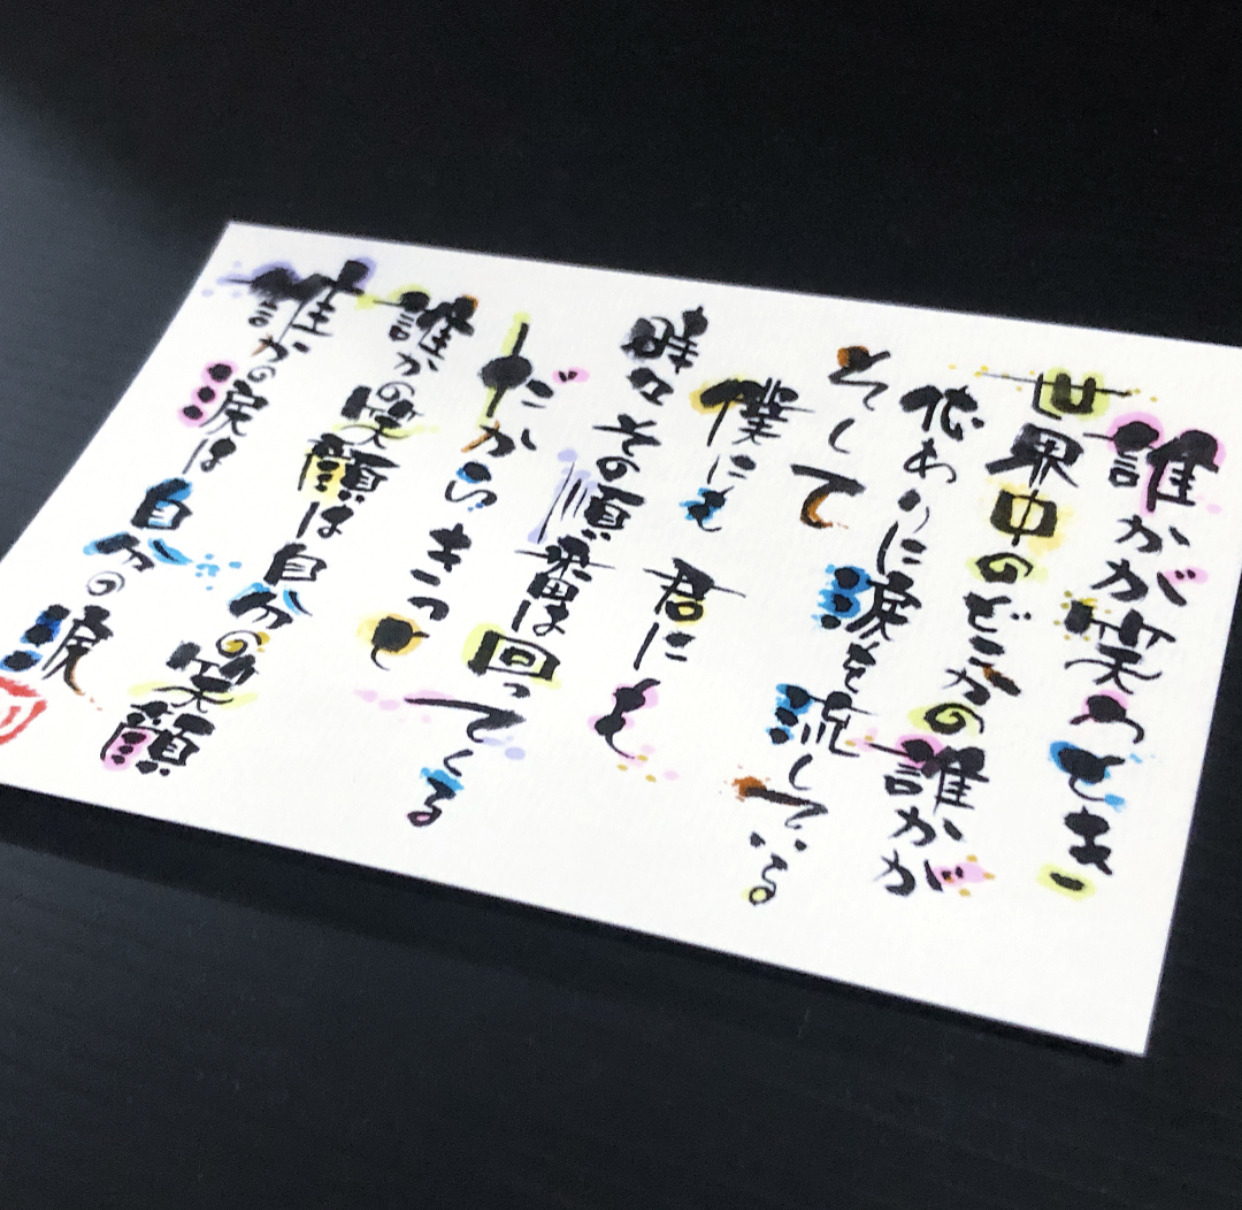 誰かが笑うとき
世界中のどこかの誰かが
代わりに涙を流している
そして
僕にも 君にも
時々その順番は回ってくる
だから きっと
誰かの笑顔は自分の笑顔
誰かの涙は自分の涙